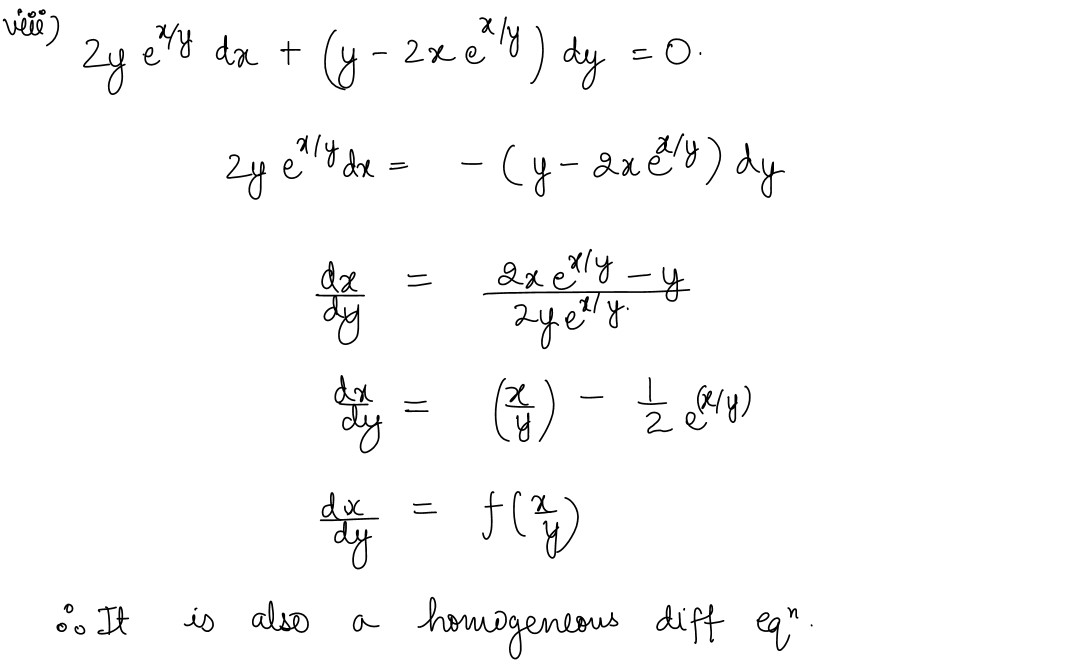 viii) 2y e^{x/y} dx + (y - 2x e^{x/y}) dy = 0.
2y e^{x/y} dx = - (y - 2x e^{x/y}) dy
dx/dy = (2x e^{x/y} - y)/(2y e^{x/y}.)
dx/dy = (x/y) - 1/2 e^{(x/y)}
dx/dy = f(x/y)
∴ It is also a homogeneous diff eqⁿ.